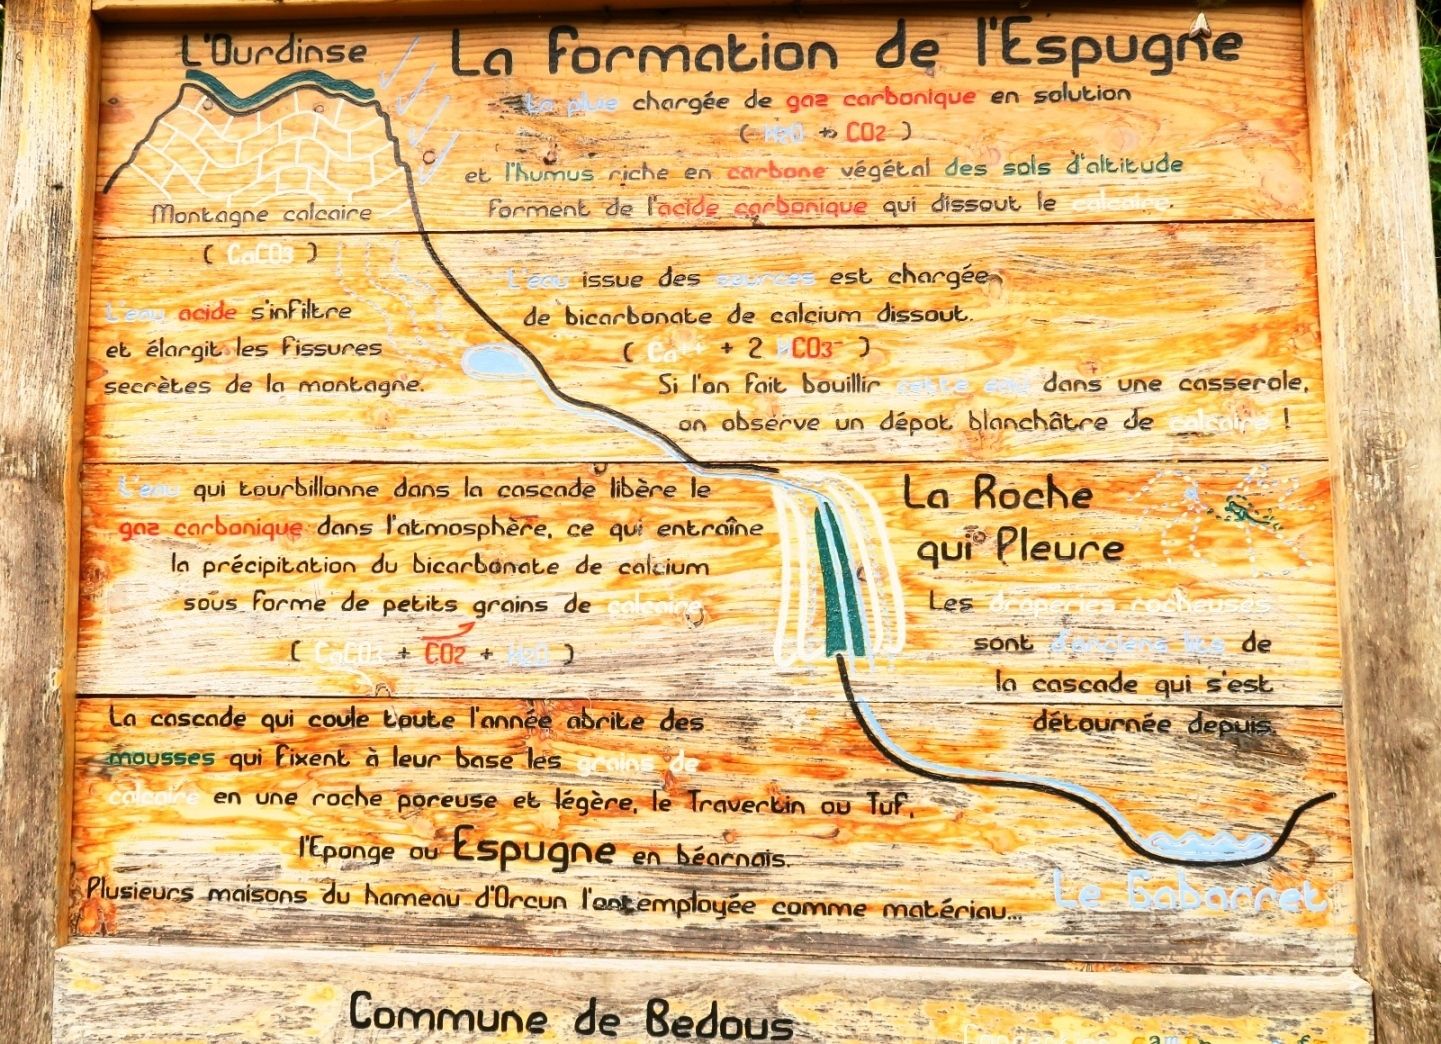 L'Ourdinse
La formation de l'Espugne
La pluie chargée de gaz carbonique en solution
( H2O + CO2 )
et l'humus riche en carbone végétal des sols d'altitude
forment de l'acide carbonique qui dissout le calcaire.
Montagne calcaire
( CaCO3 )
L'eau acide s'infiltre
et élargit les fissures
secrètes de la montagne.
L'eau issue des sources est chargée
de bicarbonate de calcium dissout.
( Ca++ + 2 HCO3- )
Si l'on fait bouillir cette eau dans une casserole,
on observe un dépot blanchâtre de calcaire !
L'eau qui tourbillonne dans la cascade libère le
gaz carbonique dans l'atmosphère, ce qui entraîne
la précipitation du bicarbonate de calcium
sous forme de petits grains de calcaire.
( CaCO3 + CO2 + H2O )
La Roche
qui Pleure
Les draperies rocheuses
sont d'anciens lits de
la cascade qui s'est
détournée depuis.
La cascade qui coule toute l'année abrite des
mousses qui fixent à leur base les grains de
calcaire en une roche poreuse et légère, le Travertin ou Tuf,
l'Eponge ou Espugne en béarnais.
Plusieurs maisons du hameau d'Orcun l'ont employée comme matériau...
Le Gabarret
Commune de Bedous